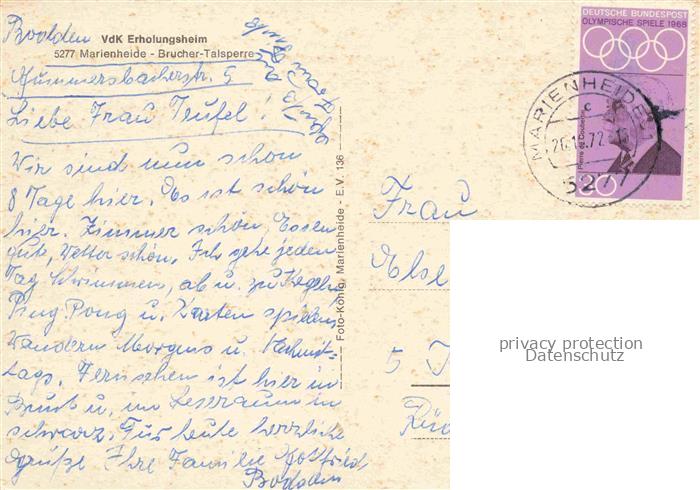 Bodden VdK Erholungsheim
5277 Marienheide - Brucher-Talsperre
Gummersbacherstr. 5
Liebe Frau Teufel!
Wir sind nun schon
8 Tage hier. Es ist schön
hier. Zimmer schön, Essen
gute, Wetter schön. Ich gehe jeden
Tag Schwimmen, ab u. zu Kegeln,
Ping Pong u. Karten spielen,
Wandern Morgens u. Nachmit=
tags. Fernsehen ist hier in
Bunt u. im Leseraum in
schwarz. Für heute herzliche
Grüße Ihre Familie Gottfried
Bodden
Foto-König, Marienheide - E.V. 136
DEUTSCHE BUNDESPOST
OLYMPISCHE SPIELE 1968
Pierre de Coubertin
20
MARIENHEIDE 1
c
72
5277
Frau
Else
5
privacy protection
Datenschutz